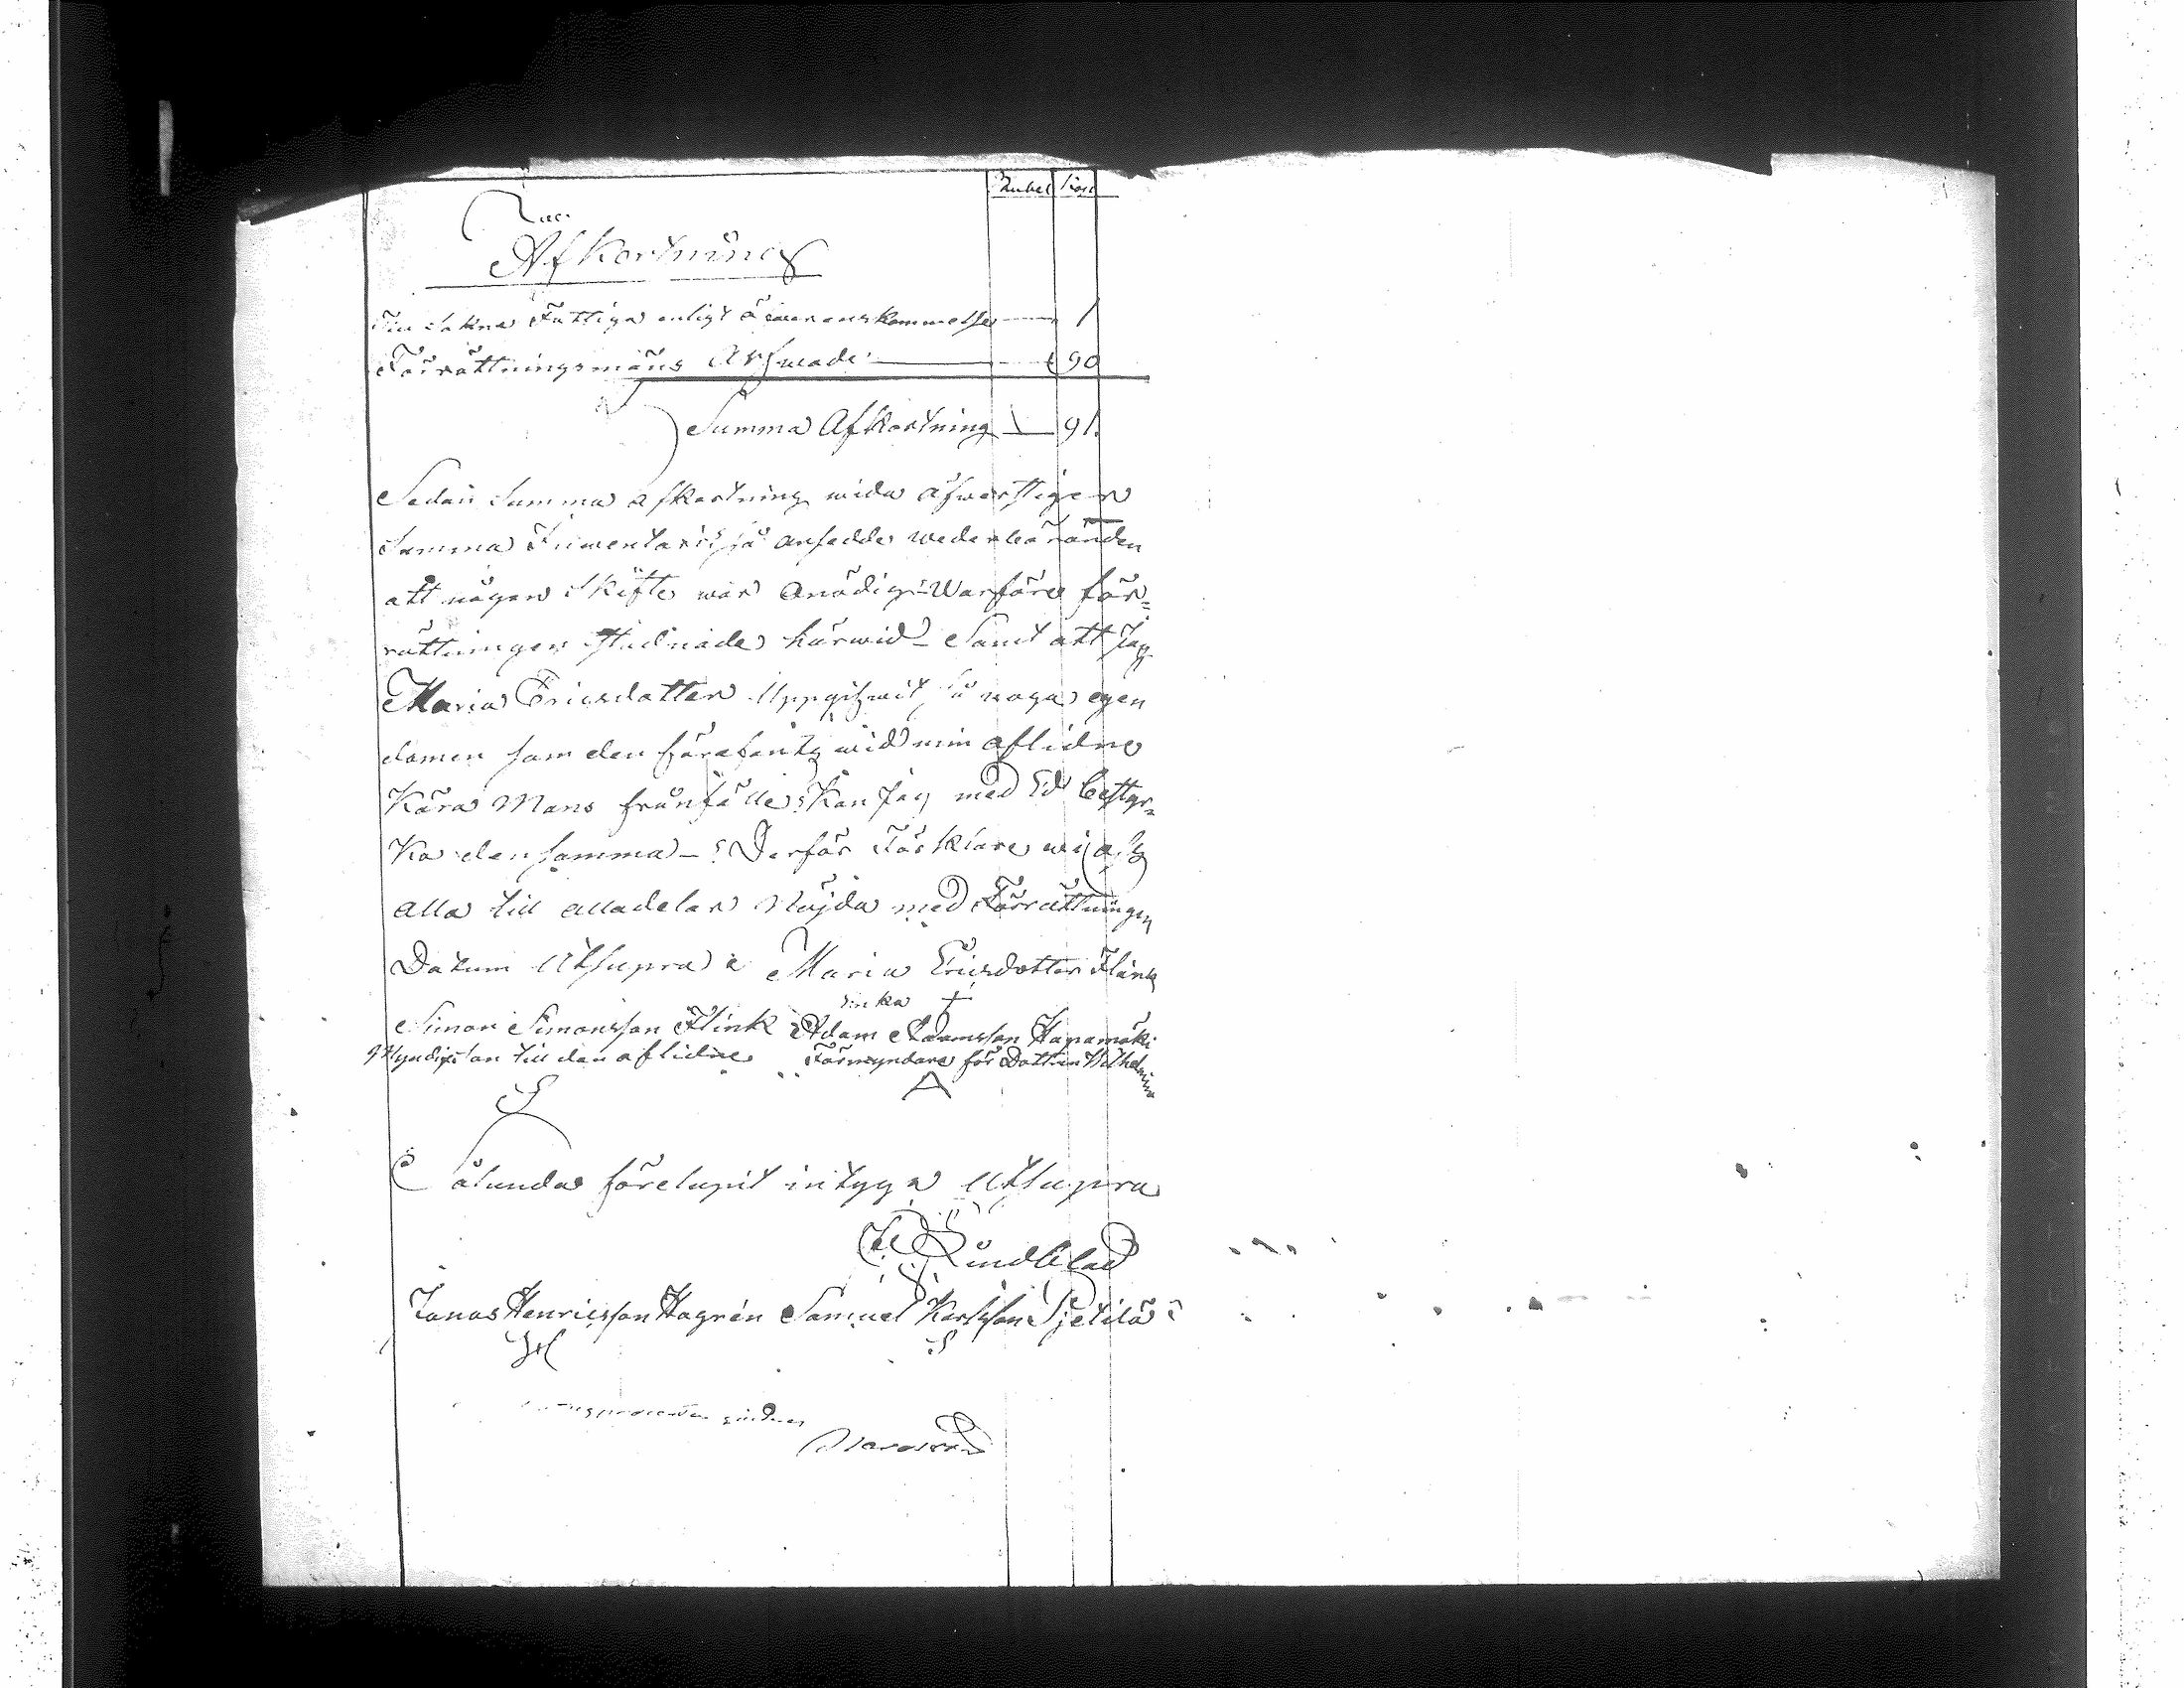 Rubel Kop
Afkortning
Till Sokne Fattiga enligt Öwerenskommelse — 1
Förrättningsmäns Arfwode — 90
Summa Afkortning — 91.
Sedan Summa afkortning wida öfwerstiger
Summa Inwentarii så ansedde wederbörande
att någon Skifte war Onödig - Warföre för=
rättningen stadnade härwid - Samt att Jag
Maria Ericsdotter Uppgifwit så noga egen
domen som den förefants wid min aflidne
Kära Mans frånfälle, Kan Jag med Ed bestyr=
ka den samma - Derför Förklare wi oss
alla till alladelar Nöjda med Förrättningen
Datum Utsupra Maria Ericsdotter Flink
Enka +
Simon Simonsson Flink Adam Adamsson Hapamäki
Myndig Son till den aflidne Förmyndare för Dottren Wilhelmina
Sålunda förelupit intygar Utsupra
Lindblad
Jonas Henricsson Hagrén Samuel Karlsson Sjetilä
JH S